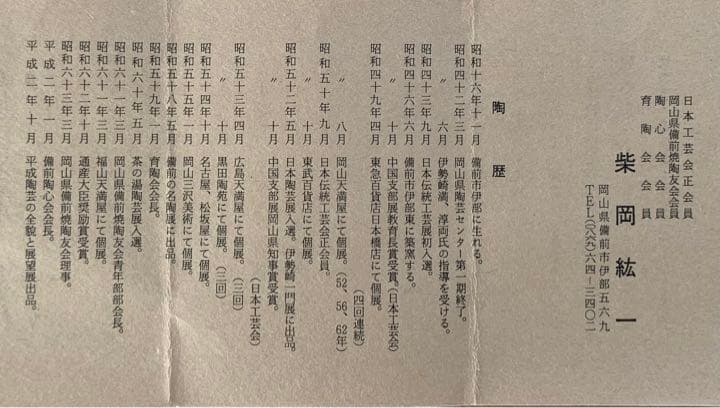 日本工芸会正会員
岡山県備前焼陶友会会員
陶心会会員
育陶会会員
柴岡紘一
岡山県備前市伊部五六九
TEL(〇八六九)六四ー三四〇二
陶歴
昭和十六年十一月 備前市伊部に生れる。
昭和四十二年三月 岡山県陶芸センター第一期終了。
〃 六月 伊勢崎満、淳両氏の指導を受ける。
昭和四十三年九月 日本伝統工芸展初入選。
昭和四十六年六月 備前市伊部東に築窯する。
〃 十月 中国支部展教育長賞受賞。(日本工芸会)
昭和四十九年四月 東急百貨店日本橋店にて個展。
(四回連続)
〃 八月 岡山天満屋にて個展。(52、56、62年)
昭和五十年九月 日本伝統工芸会正会員。
〃 十月 東武百貨店にて個展。
昭和五十二年五月 日本陶芸展入選。伊勢崎一門展に出品。
〃 十月 中国支部展岡山県知事賞受賞。
(日本工芸会)
昭和五十三年四月 広島天満屋にて個展。(三回)
〃 十月 黒田陶苑にて個展。(三回)
昭和五十四年十月 名古屋、松坂屋にて個展。
昭和五十五年一月 岡山三沢美術にて個展。
昭和五十八年五月 備前の名陶展に出品。
昭和五十九年一月 育陶会会長。
昭和六十年五月 茶の湯陶芸展入選。
昭和六十一年三月 岡山県備前焼陶友会青年部部会長。
昭和六十一年三月 福山天満屋にて個展。
昭和六十二年十月 通産大臣奨励賞受賞。
昭和六十三年三月 岡山県備前焼陶友会理事。
平成二年一月 備前陶心会会長。
平成二年十月 平成陶芸の全貌と展望展出品。